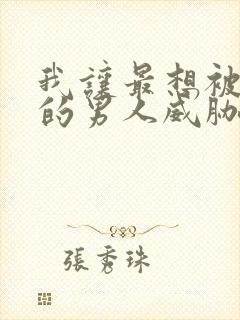 我讓最想被
的男人威脅
張秀珠